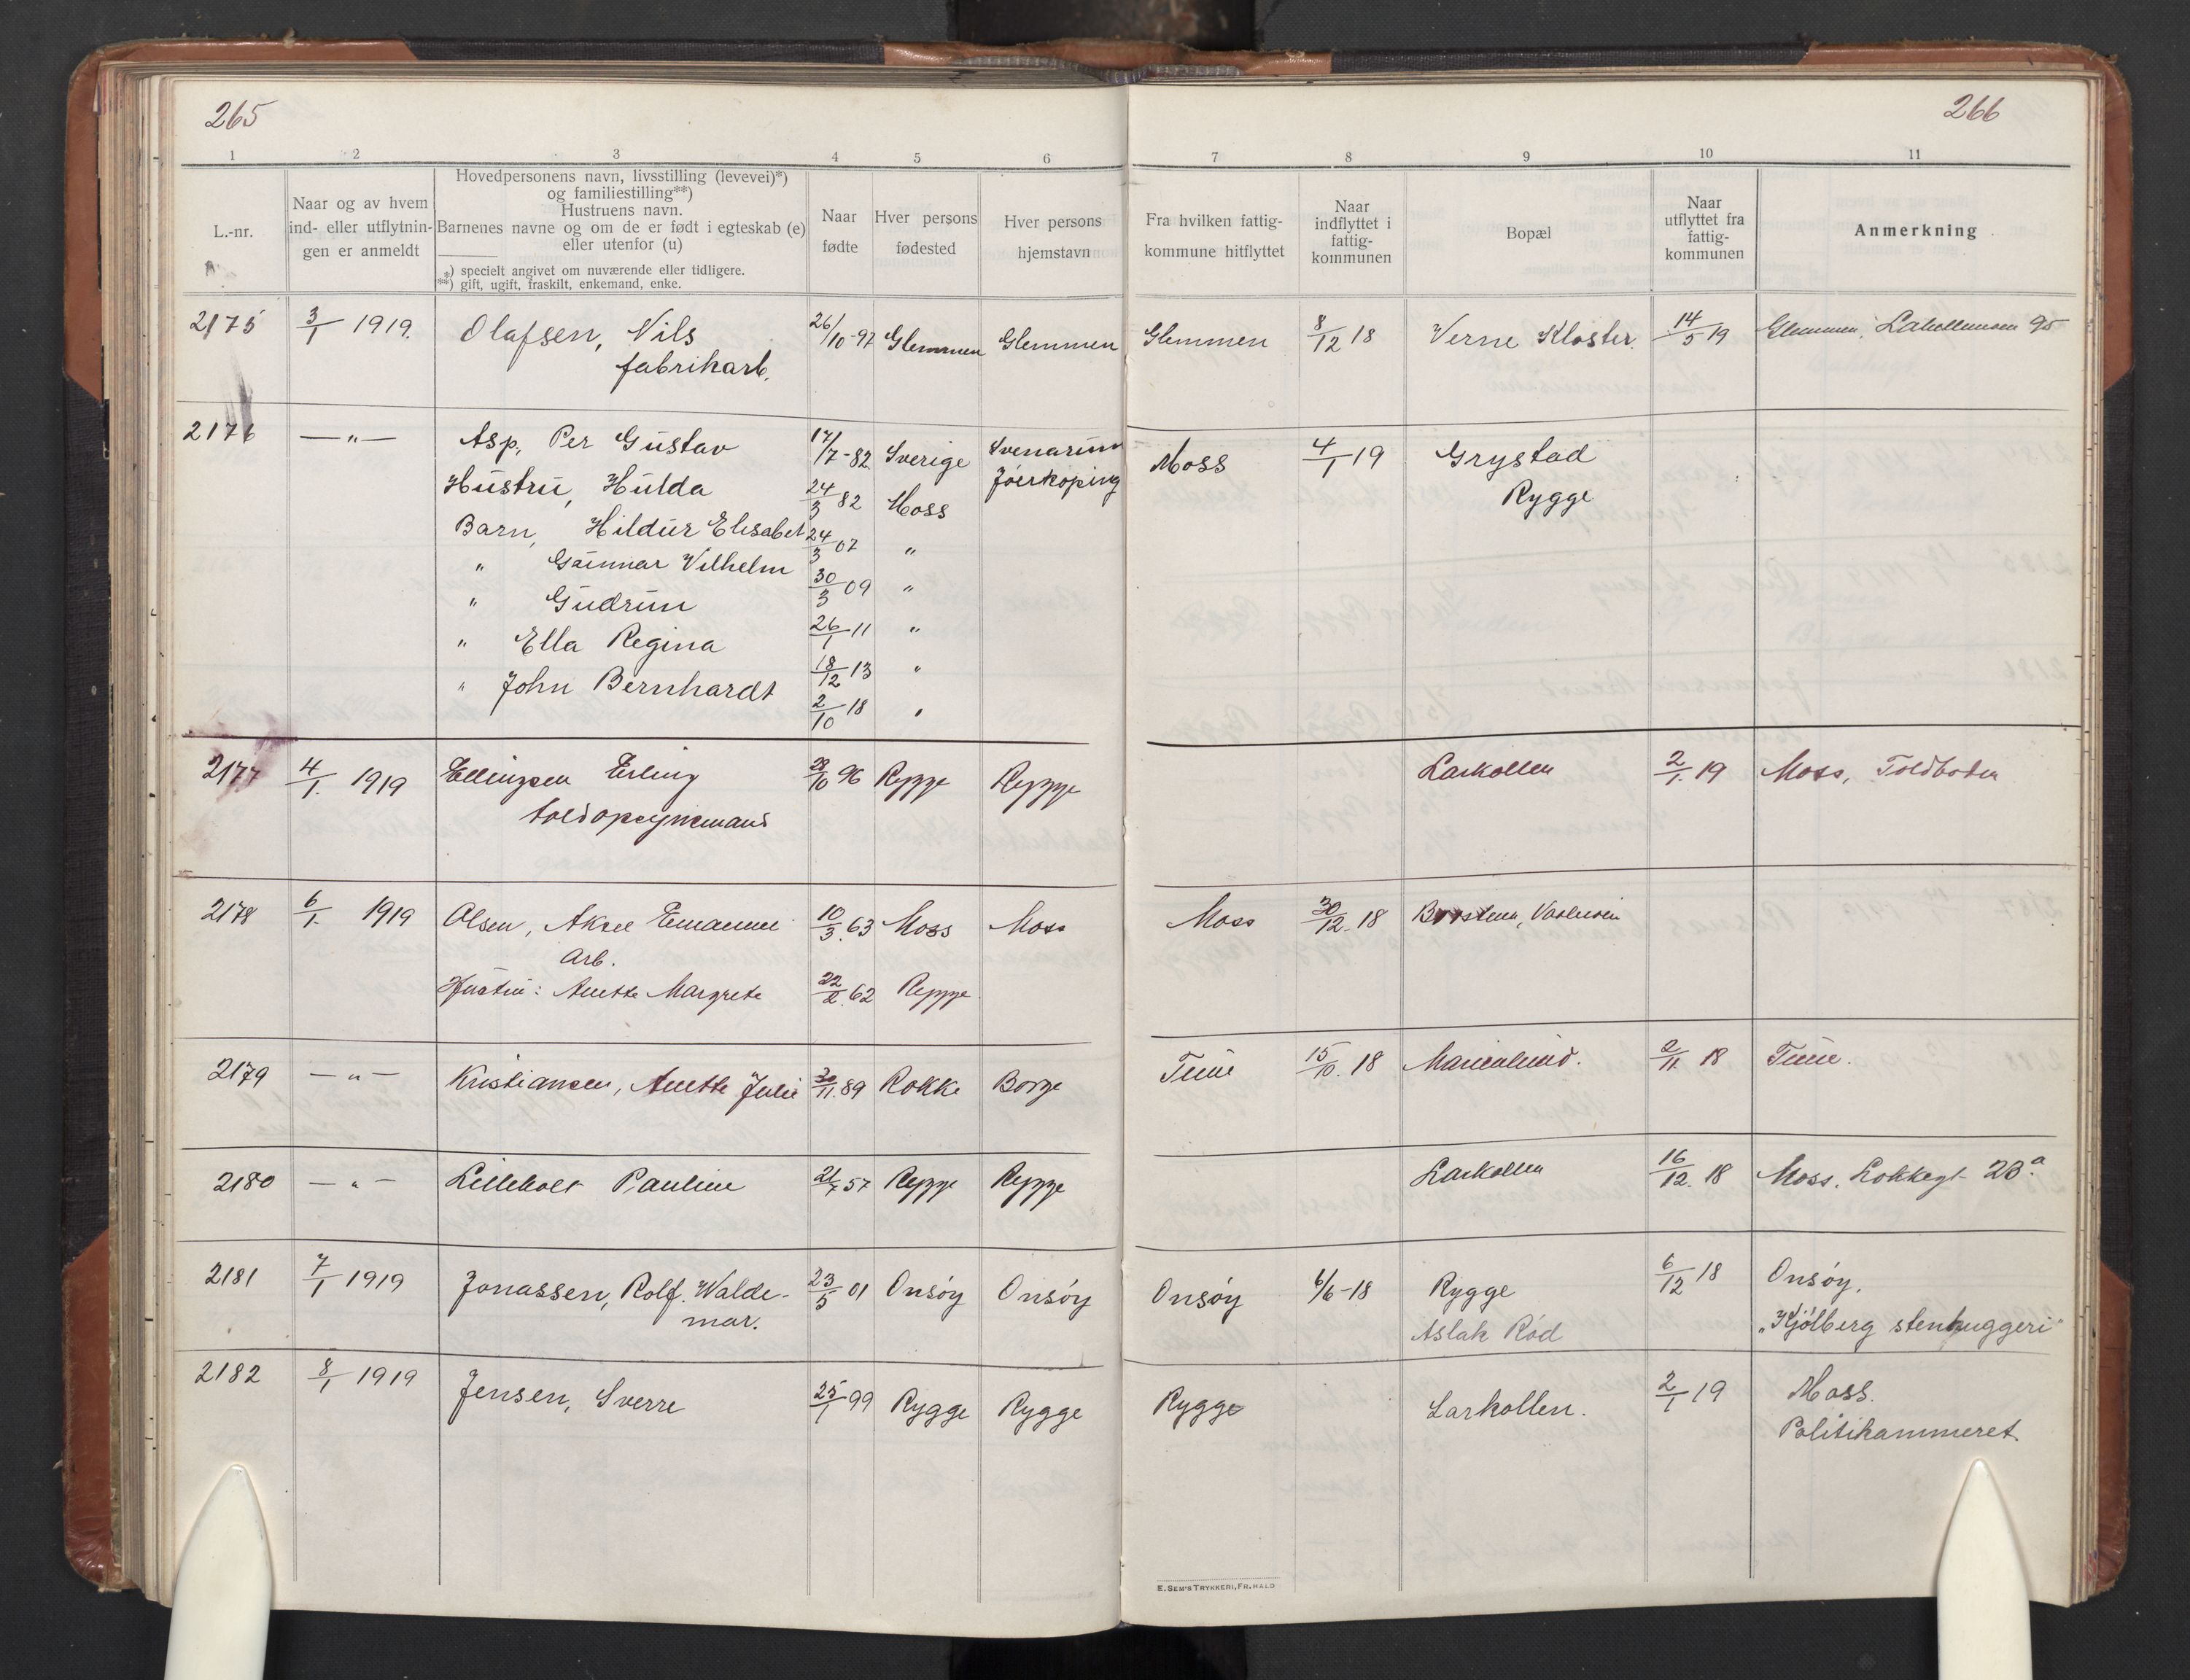 265
266
1 2 3 4 5 6 7 8 9 10 11
L.-nr.
Naar og av hvem
ind- eller utflytnin-
gen er anmeldt
Hovedpersonens navn, livsstilling (levevei)*)
og familiestilling**)
Hustruens navn.
Barnenes navne og om de er født i egteskab (e)
eller utenfor (u)
*) specielt angivet om nuværende eller tidligere.
**) gift, ugift, fraskilt, enkemand, enke.
Naar
fødte
Hver persons
fødested
Hver persons
hjemstavn
Fra hvilken fattig-
kommune hitflyttet
Naar
indflyttet i
fattig-
kommunen
Bopæl
Naar
utflyttet fra
fattig-
kommunen
Anmerkning
2175 3/1 1919. Olafsen, Nils 26/10-97 Glemmen Glemmen Glemmen 8/12 18 Verne Kloster. 14/5 19 Glemmen, 95
fabrikarb.
2176 —"— Asp, Per Gustav 17/7-82 Sverige Svenarum Moss 4/1 19 Grystad
Hustru, Hulda 24/3 82 Moss Jöerkoping Rygge
Barn, Hildur Elisabet 24/3 07 "
" Gunnar Vilhelm 30/3 09 "
" Gudrun 26/1-11 "
" Ella Regina 18/12 13 "
" John Bernhardt 2/10 18 "
2177 4/1. 1919 Ellingsen Erling 28/10 96 Rygge Rygge Larkollen 2/1. 19 Moss, Toldboden
toldopsynsmand
2178 6/1. 1919 Olsen, Aksel Emanuel 10/3. 63 Moss Moss Moss 30/12. 18
Arb.
Hustru: Anette Margrete 22/2. 62 Rygge
2179 —"— Kristiansen, Anette Julie 30/11. 89 Rokke Borge Tune 15/10. 18 Marienlund. 2/11. 18 Tune.
2180 —"— Lilleholt Pauline 21/7 57 Rygge Rygge Larkollen 16/12. 18 Moss. Lokkegt 23 a.
2181 7/1 1919 Jonassen, Rolf. Walde- 23/5 01 Onsöy Onsöy Onsöy 6/6-18 Rygge 6/12 18 Onsöy.
mar. Aslak Röd "Kjölberg stenhuggeri"
2182 8/1 1919 Jensen, Sverre 25/1 99 Rygge Rygge Rygge Larkollen. 2/1 19 Moss.
Politikammeret.
E. SEM'S TRYKKERI, FR.HALD